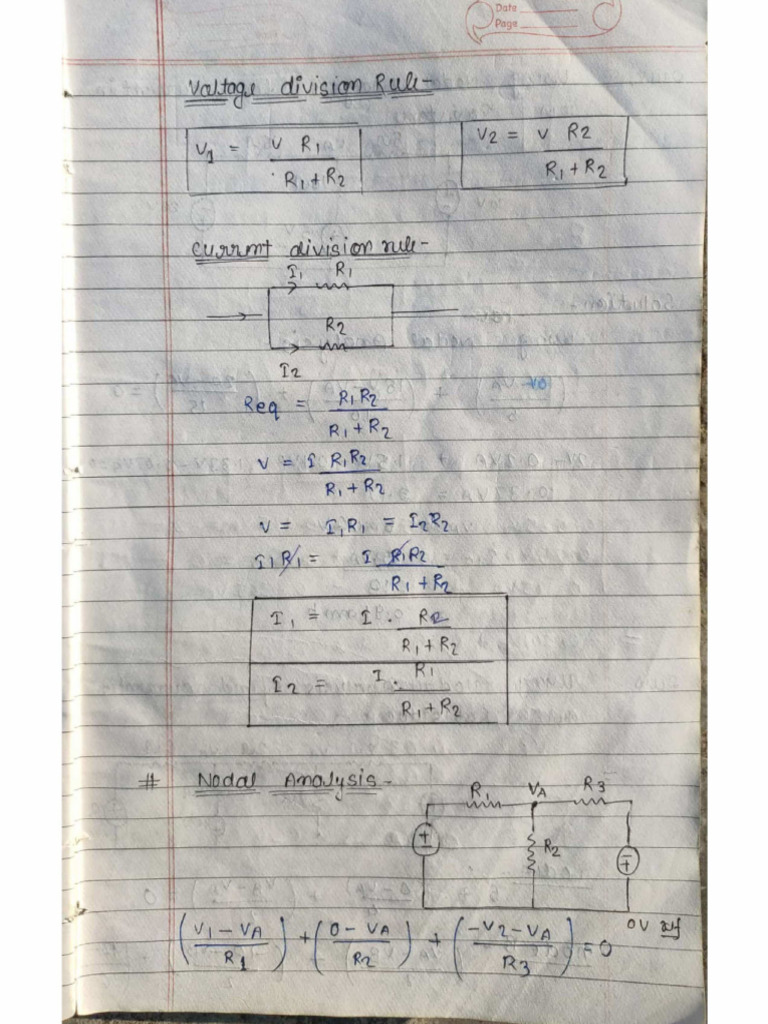 Date
Page
Voltage division Rule-
V1 = V R1 / R1+R2
V2 = V R2 / R1+R2
Current division rule-
I1 R1
R2
I2
Req = R1R2 / R1+R2
V = I R1R2 / R1+R2
V = I1R1 = I2R2
I1R1 = I R1R2 / R1+R2
I1 = I . R2 / R1+R2
I2 = I . R1 / R1+R2
# Nodal Analysis-
R1 VA R3
R2
0V ref
(V1-VA / R1) + (0-VA / R2) + (-V2-VA / R3) = 0